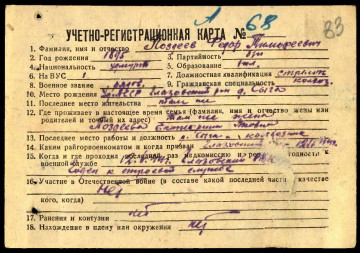 1 68
83
УЧЕТНО-РЕГИСТРАЦИОННАЯ КАРТА №
1. Фамилия, имя и отчество Поздеев Федор Тимофеевич
2. Год рождения 1895 3. Партийность б/п
4. Национальность удмурт 5. Образование 1 кл.
6. На ВУС 7. Должностная квалификация стрелок
8. Военное звание 9. Гражданская специальность колхоз.
10. Место рождения УАССР Глазовский р-н д.
11. Последнее место жительства там же
12. Где проживает в настоящее время семья (фамилия, имя и отчество жены или
родителей и точный их адрес) Там же жена
Поздеева
13. Последнее место работы и должность д. колхозник
14. Каким райгорвоенкоматом и когда призван Глазовский
15. Когда и где проходил последний раз медкомиссию и годности к
военной службе Глазовский РВК
годен к строевой службе
16. Участие в Отечественной войне (в составе какой последней части качестве
кого, когда) Нет
17. Ранения и контузии нет
18. Нахождение в плену или окружении нет